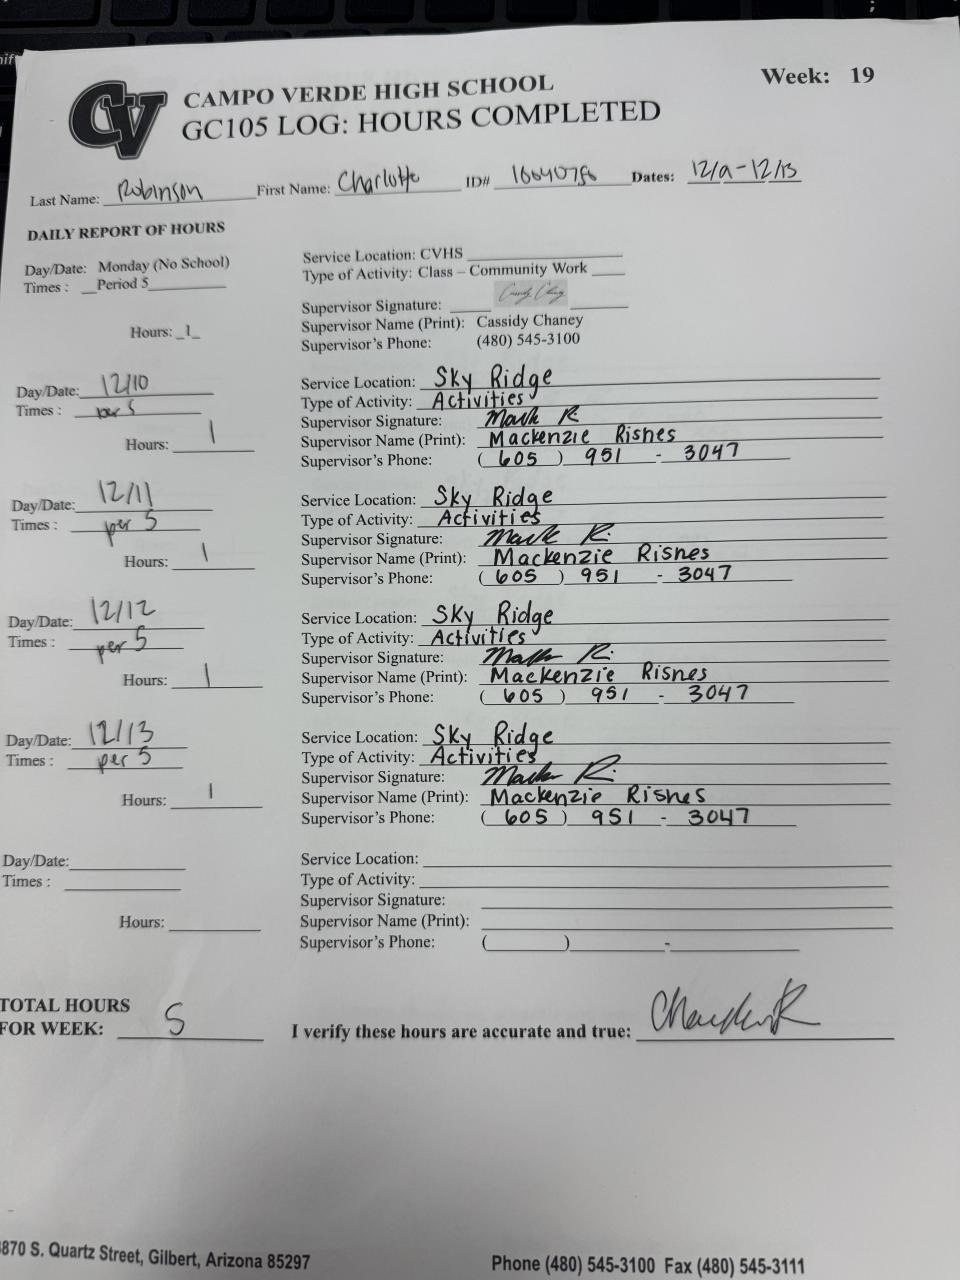 Week: 19
CV
CAMPO VERDE HIGH SCHOOL
GC105 LOG: HOURS COMPLETED
Last Name: Robinson First Name: Charlotte ID# Dates: 12/9-12/13
DAILY REPORT OF HOURS
Day/Date: Monday (No School)
Times : Period 5
Hours: 1
Service Location: CVHS
Type of Activity: Class – Community Work
Supervisor Signature: Cassidy Chaney
Supervisor Name (Print): Cassidy Chaney
Supervisor's Phone: (480) 545-3100
Day/Date: 12/10
Times : per 5
Hours: 1
Service Location: Sky Ridge
Type of Activity: Activities
Supervisor Signature:
Supervisor Name (Print): Mackenzie Risnes
Supervisor's Phone: (605) 951 - 3047
Day/Date: 12/11
Times : per 5
Hours: 1
Service Location: Sky Ridge
Type of Activity: Activities
Supervisor Signature:
Supervisor Name (Print): Mackenzie Risnes
Supervisor's Phone: (605) 951 - 3047
Day/Date: 12/12
Times : per 5
Hours: 1
Service Location: Sky Ridge
Type of Activity: Activities
Supervisor Signature:
Supervisor Name (Print): Mackenzie Risnes
Supervisor's Phone: (605) 951 - 3047
Day/Date: 12/13
Times : per 5
Hours: 1
Service Location: Sky Ridge
Type of Activity: Activities
Supervisor Signature:
Supervisor Name (Print): Mackenzie Risnes
Supervisor's Phone: (605) 951 - 3047
Day/Date:
Times :
Hours:
Service Location:
Type of Activity:
Supervisor Signature:
Supervisor Name (Print):
Supervisor's Phone: ( ) -
TOTAL HOURS
FOR WEEK: 5
I verify these hours are accurate and true:
870 S. Quartz Street, Gilbert, Arizona 85297
Phone (480) 545-3100 Fax (480) 545-3111